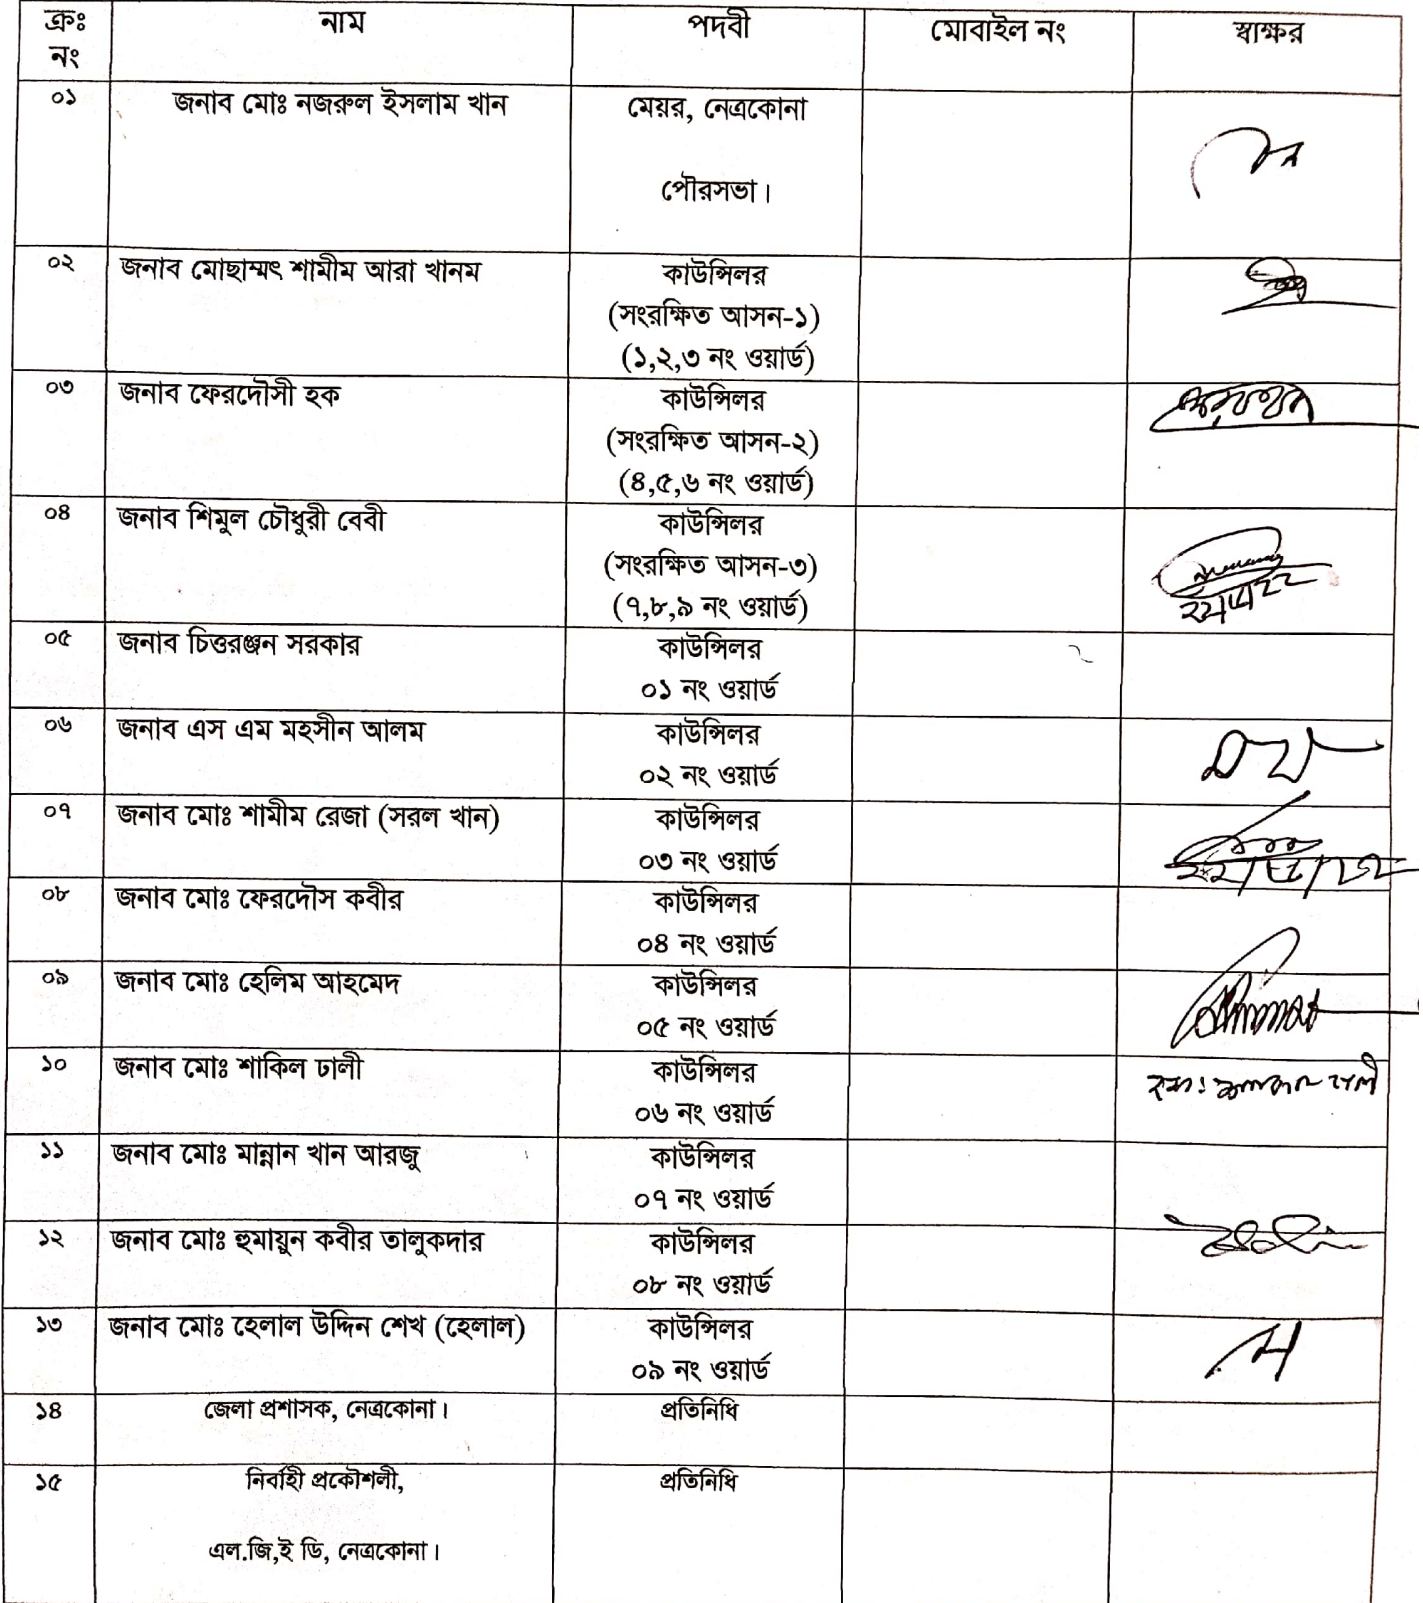 ক্রঃ নং নাম পদবী মোবাইল নং স্বাক্ষর
০১ জনাব মোঃ নজরুল ইসলাম খান মেয়র, নেত্রকোনা
পৌরসভা।
০২ জনাব মোছাম্মৎ শামীম আরা খানম কাউন্সিলর
(সংরক্ষিত আসন-১)
(১,২,৩ নং ওয়ার্ড)
০৩ জনাব ফেরদৌসী হক কাউন্সিলর
(সংরক্ষিত আসন-২)
(৪,৫,৬ নং ওয়ার্ড)
০৪ জনাব শিমুল চৌধুরী বেবী কাউন্সিলর
(সংরক্ষিত আসন-৩)
(৭,৮,৯ নং ওয়ার্ড)
০৫ জনাব চিত্তরঞ্জন সরকার কাউন্সিলর
০১ নং ওয়ার্ড
০৬ জনাব এস এম মহসীন আলম কাউন্সিলর
০২ নং ওয়ার্ড
০৭ জনাব মোঃ শামীম রেজা (সরল খান) কাউন্সিলর
০৩ নং ওয়ার্ড
০৮ জনাব মোঃ ফেরদৌস কবীর কাউন্সিলর
০৪ নং ওয়ার্ড
০৯ জনাব মোঃ হেলিম আহমেদ কাউন্সিলর
০৫ নং ওয়ার্ড
১০ জনাব মোঃ শাকিল ঢালী কাউন্সিলর
০৬ নং ওয়ার্ড
১১ জনাব মোঃ মান্নান খান আরজু কাউন্সিলর
০৭ নং ওয়ার্ড
১২ জনাব মোঃ হুমায়ুন কবীর তালুকদার কাউন্সিলর
০৮ নং ওয়ার্ড
১৩ জনাব মোঃ হেলাল উদ্দিন শেখ (হেলাল) কাউন্সিলর
০৯ নং ওয়ার্ড
১৪ জেলা প্রশাসক, নেত্রকোনা। প্রতিনিধি
১৫ নির্বাহী প্রকৌশলী, প্রতিনিধি
এল.জি,ই ডি, নেত্রকোনা।